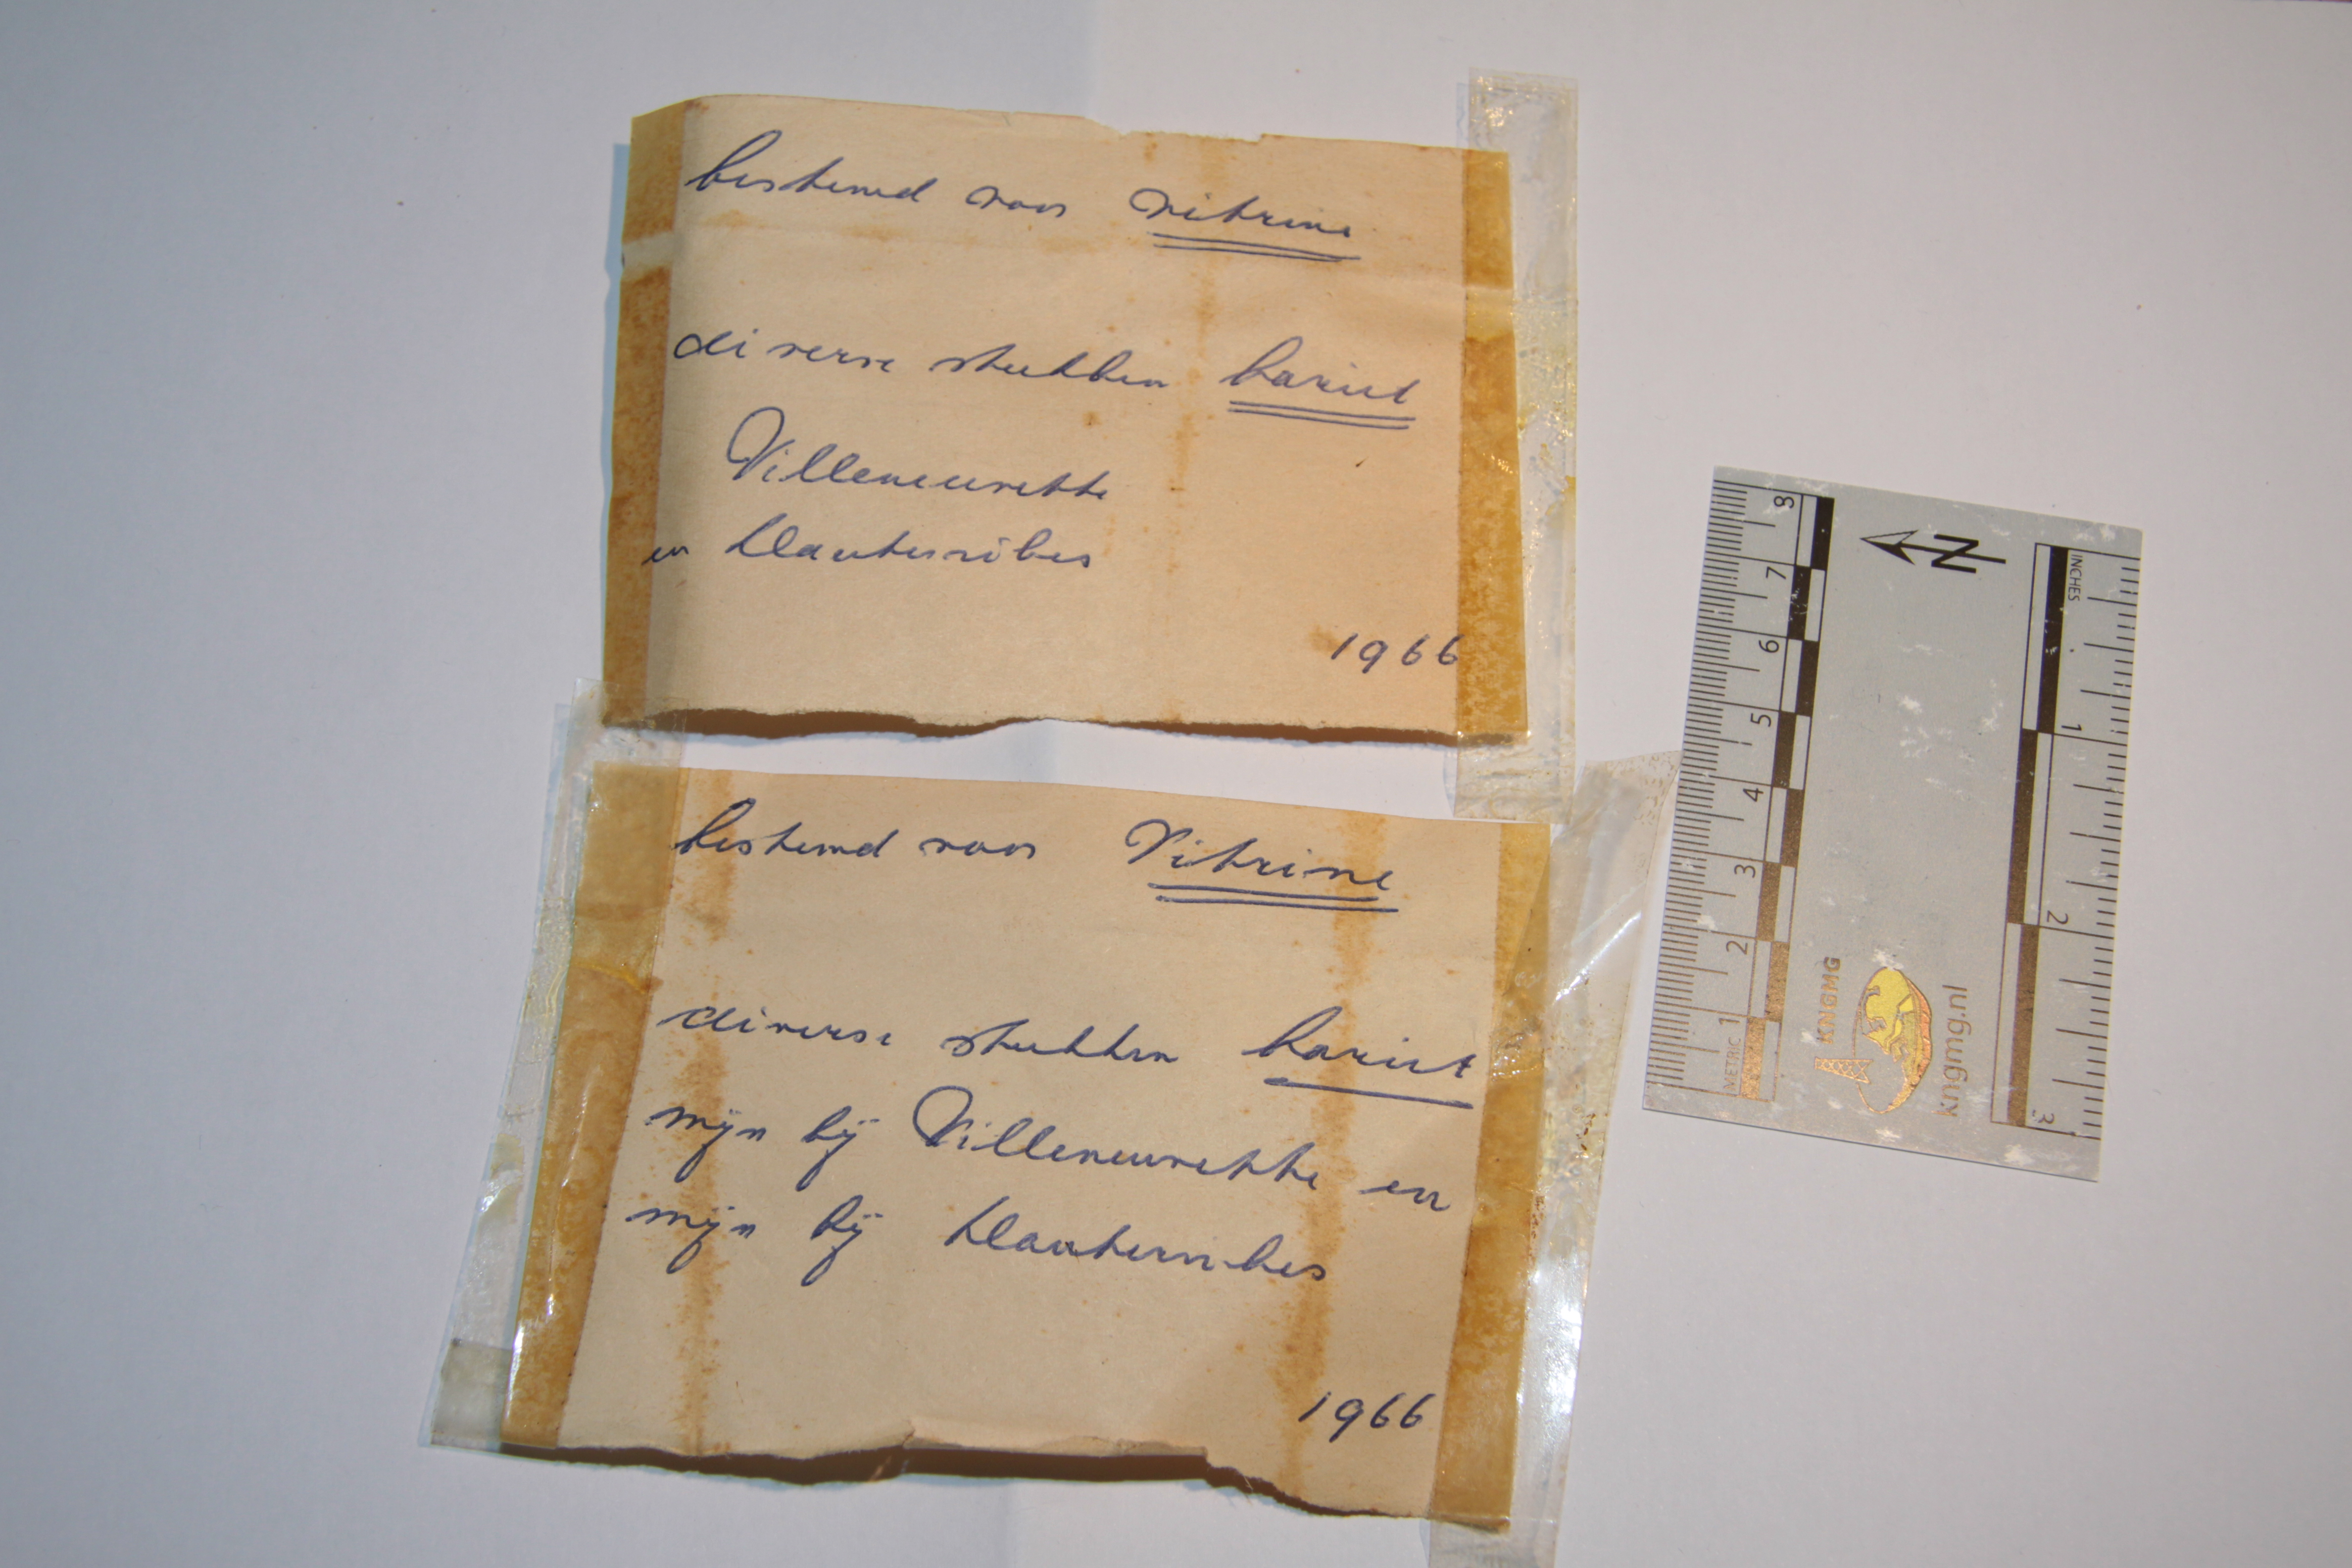 bestemd voor vitrine
diverse stukken bariet
Villeneuvette
en Hauterives
1966
bestemd voor Vitrine
diverse stukken bariet
mijn bij Villeneuvette en
mijn bij Hauterives
1966
8
7
6
5
4
3
2
1
METRIC
N
KNGMG
kngmg.nl
INCHES
1
2
3